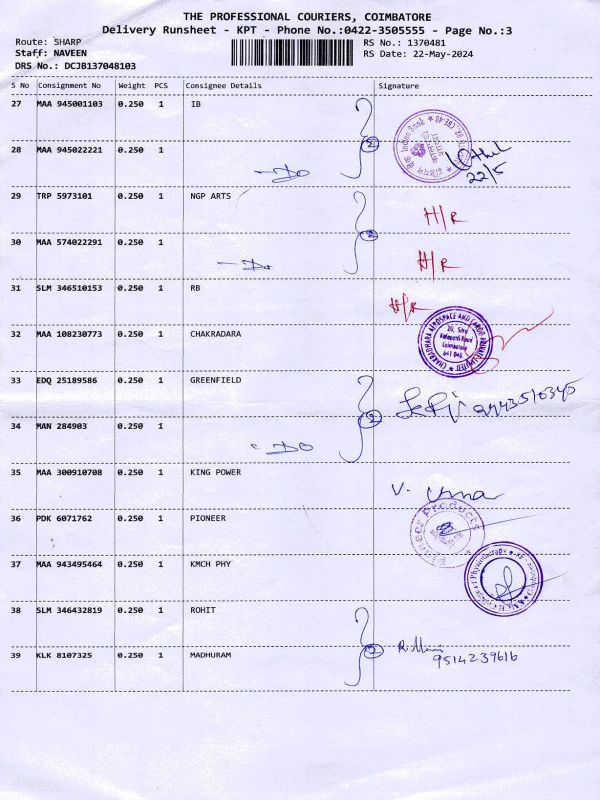 THE PROFESSIONAL COURIERS, COIMBATORE
Delivery Runsheet - KPT - Phone No.:0422-3505555 - Page No.:3
Route: SHARP
Staff: NAVEEN
DRS No.: DCJB137048103
RS No.: 1370481
RS Date: 22-May-2024
S No Consignment No Weight PCS Consignee Details Signature
27 MAA 945001103 0.250 1 IB
28 MAA 945022221 0.250 1 -Do
2
Indian Bank
22/5
29 TRP 5973101 0.250 1 NGP ARTS H/R
2
30 MAA 574022291 0.250 1 -Do H/R
31 SLM 346510153 0.250 1 RB H/R
32 MAA 108230773 0.250 1 CHAKRADARA
CHAKRADHARA AEROSPACE AND CARGO PRIVATE LIMITED
Coimbatore
641 048
33 EDQ 25189586 0.250 1 GREENFIELD
2
34 MAN 284903 0.250 1 -DO
35 MAA 300910708 0.250 1 KING POWER V. Uma
36 PDK 6071762 0.250 1 PIONEER
Pioneer Products
37 MAA 943495464 0.250 1 KMCH PHY
KMCH College of Physiotherapy
38 SLM 346432819 0.250 1 ROHIT
2
39 KLK 8107325 0.250 1 MADHURAM
9514239616